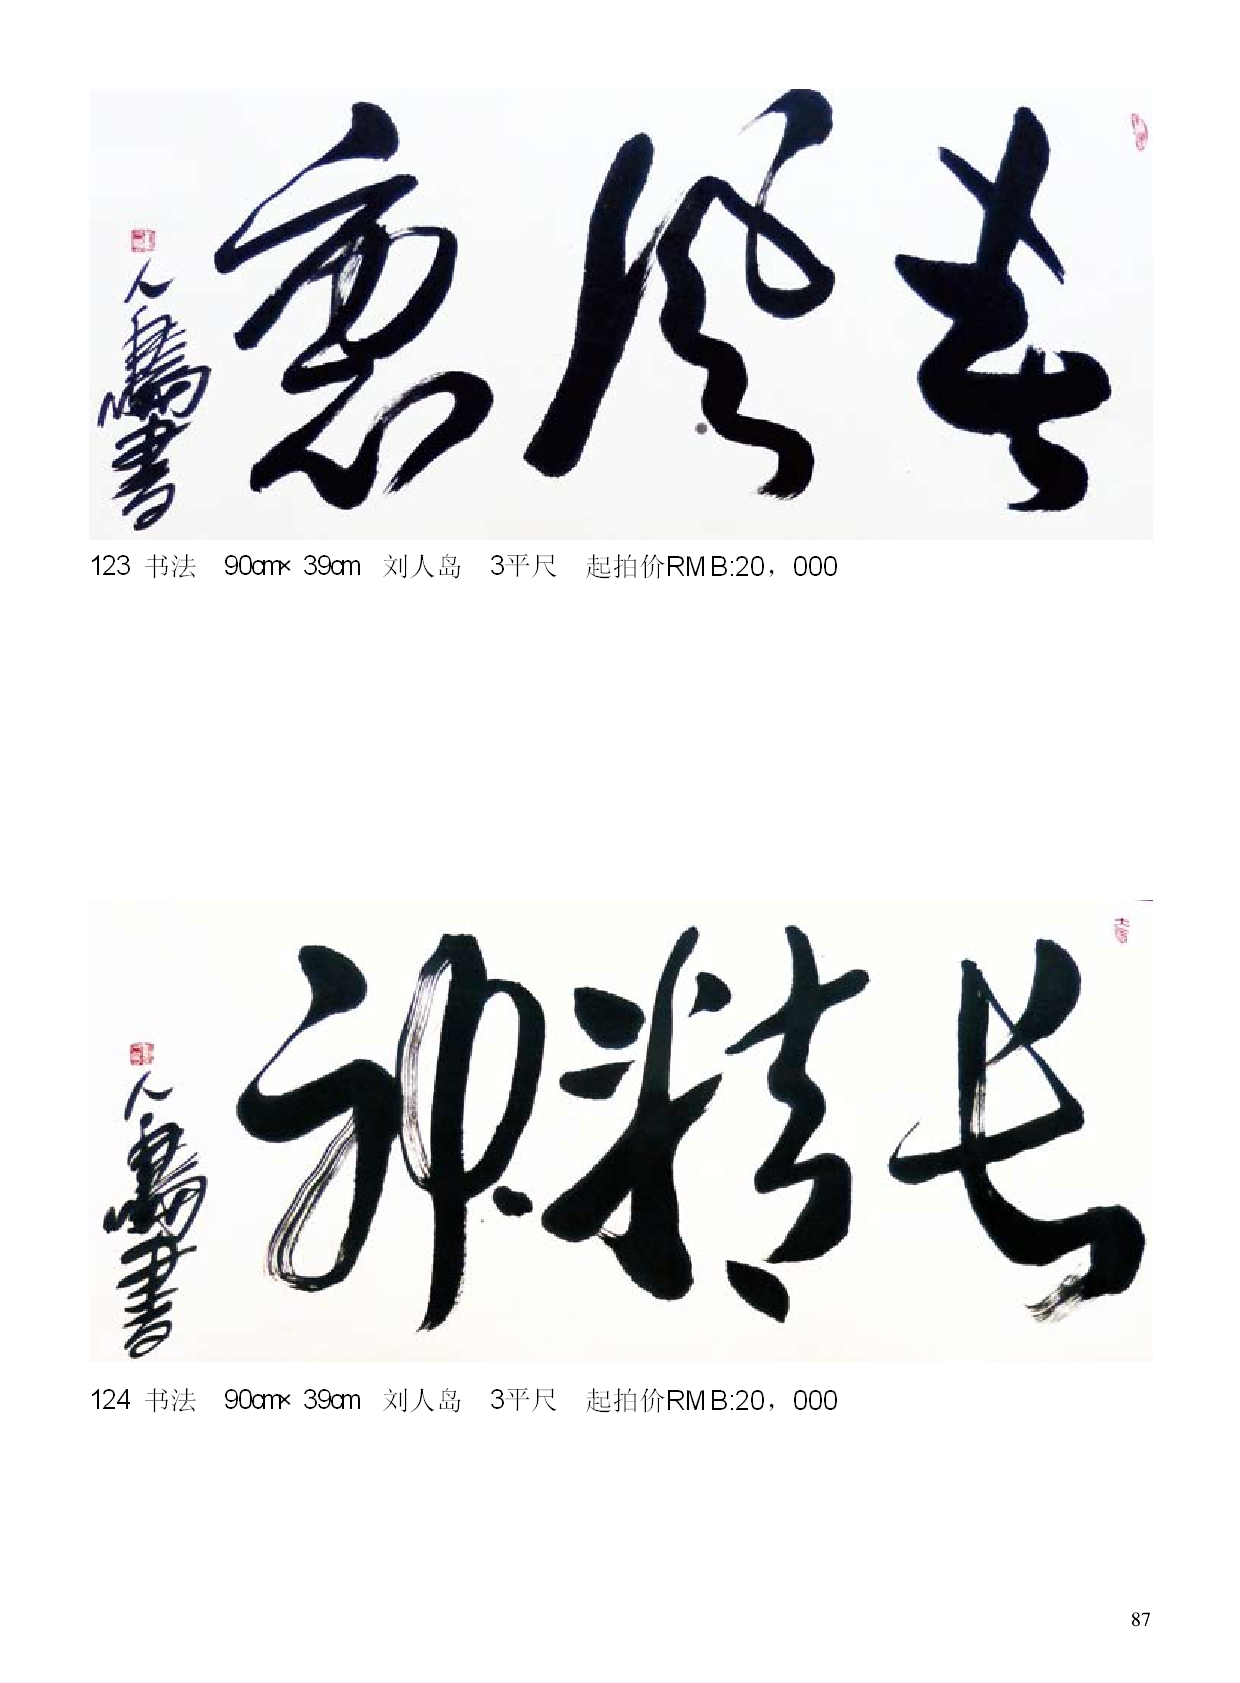 风
人島書
123 书法 90cm×39cm 刘人岛 3平尺 起拍价RMB:20，000
长精神
人島書
124 书法 90cm×39cm 刘人岛 3平尺 起拍价RMB:20，000
87